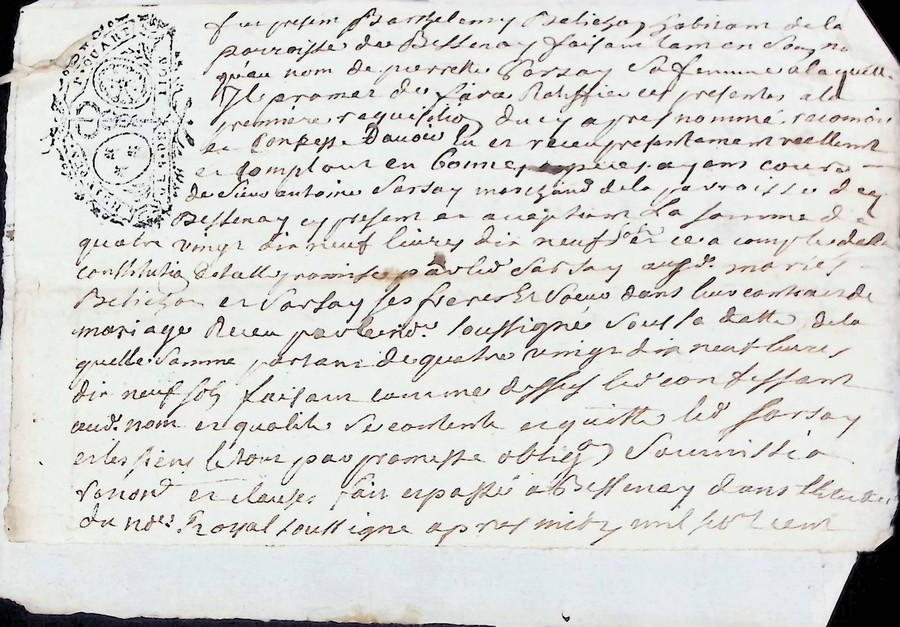 fut present Barthelemy Belichon habitant de la
paroisse de Bessenay faisant tam en son no
qu'au nom de pierrette Sarsay sa femme a laquelle
Il promet de faire Ratiffier ces presentes a la
premiere requisition du cy apres nommé reconnoi
et Confesse D'avoir Eu et receu presentement reellemt
et Comptant en bonnes especes ayant cours
de Sieur antoine Sarsay marchand de la parroisse de
Bessenay cy present et acceptant La Somme de
quatre vingt dix neuf livres dix neuf sols et ce a compte de la
constitution promise par led Sarsay aud. mariés
Belichon et Sarsay ses frere Et Soeur dans leur contract de
mariage Receu par le no.re soussigné sous sa datte de la
quelle Somme partant de quatre vingt dix neuf livres
dix neuf sols faisant comme dessus led confessant
aud. nom et qualité Se contente et quitte led Sarsay
et les siens le tout par promesse oblig.on Soumission
renon.on et clauses fait et passé a Bessenay dans L'etude
du no.re Royal soussigné apres midy mil sept cent